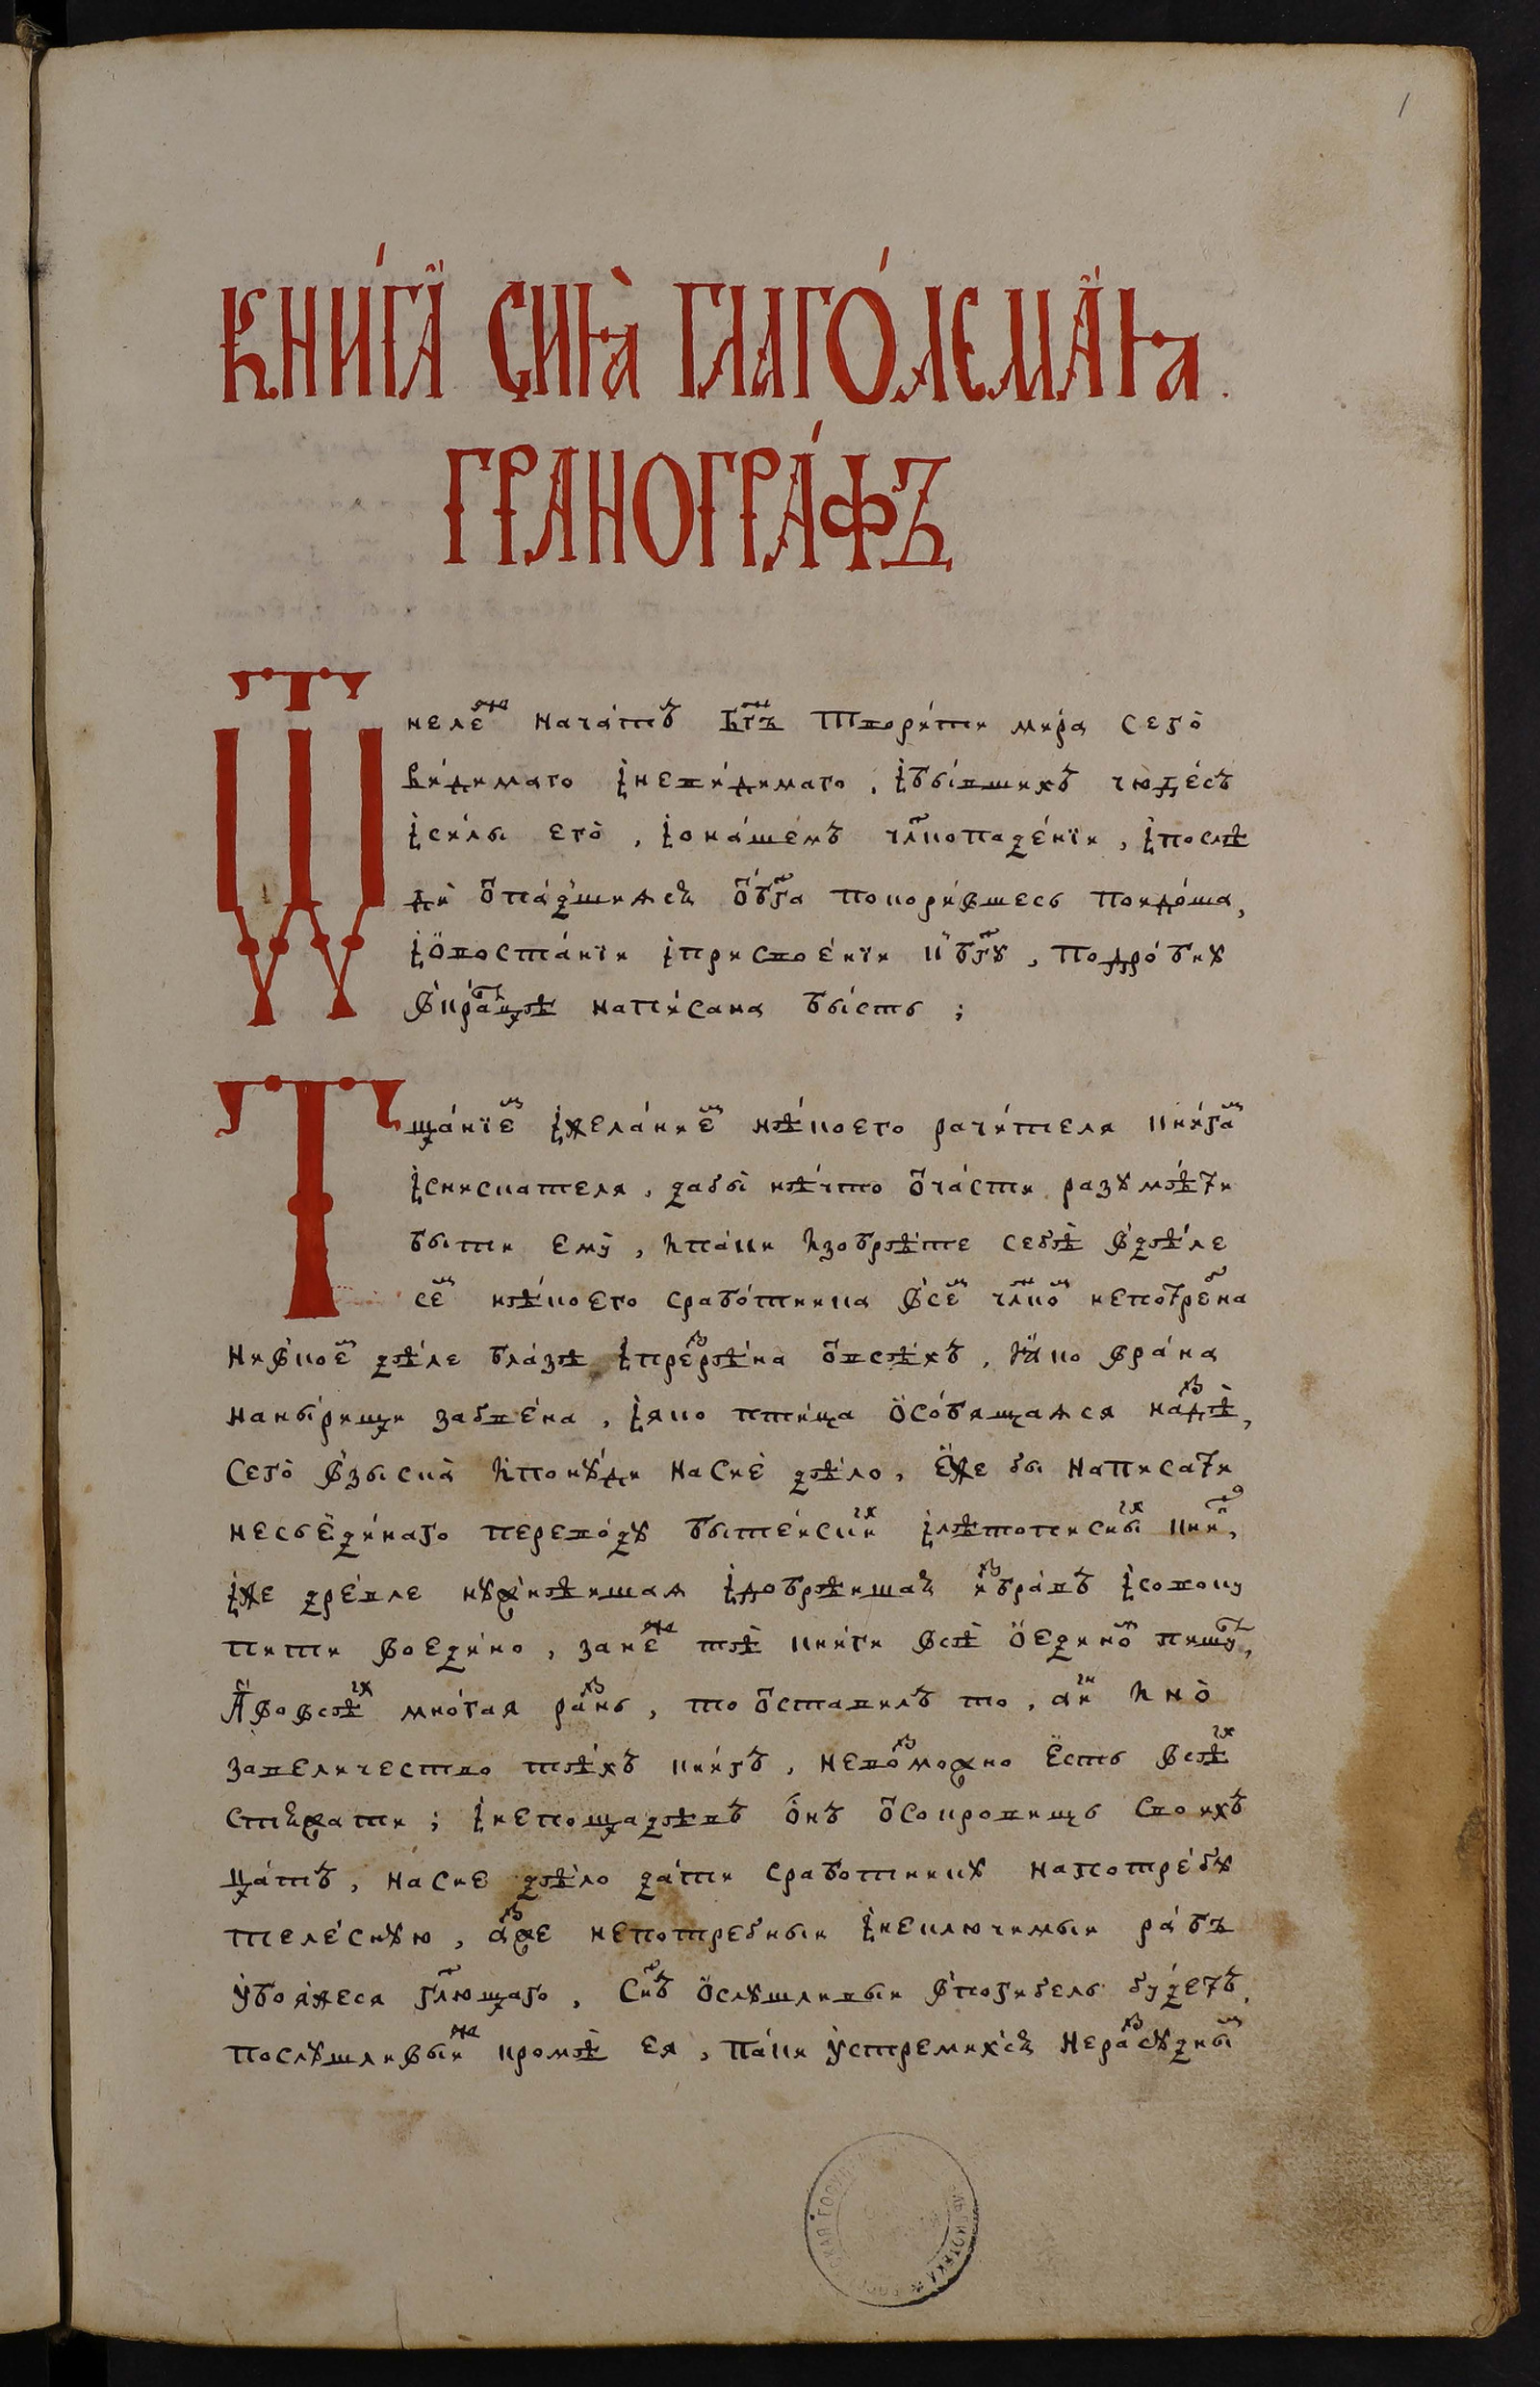 1
КНИ́ГА СИѦ̀ ГЛАГО́ЛЕМАѦ.
ГРАНОГРА́ФЪ
Ѿнелеⷤ нача́тъ бг҃ъ твори́ти ми́ра сего̀
ви́димаго и҆неви́димаго, и҆бы́вшихъ чюде́съ
и҆си́лы его̀, и҆она́шемъ чл҃копаде́нїи, и҆послѣ
дѝ ѿпа́дшияся ѿбг҃а покори́вшесь поидо́ша,
и҆ѡ҆воста́нїи и҆присвое́нїи къбг҃ꙋ, подро́бнꙋ
вкра́тцѣ напи́сана бы́сть;
Тща́нїеⷨ и҆жела́ниеⷨ нѣ́коего рачи́теля кни́гаⷨ
и҆снискателя, дабы̀ нѣ́что ѿча́сти разꙋмѣ́ти
быти емꙋ̀, и҆па́ки и҆зобрѣ́те себѣ̀ вдѣ́ле
сеⷨ нѣ́коего срабо́тника в̾сеⷨ чл҃коⷨ непотреⷠна
нивкоеⷨ дѣ́ле бла́зѣ и҆преⷥрѣ́на ѿвсѣ́хъ, ꙗ҆́ко вра́на
наны́рищи забве́на, и҆яко пти́ца ѻ҆со́бящаяся наⷥдѣ̀,
сего̀ взыска̀ и҆понꙋ́ди насиѐ дѣ́ло, е҆́же бы написати
несъеди́наго перево́дꙋ быте́йскиⷯ и҆лѣтописныⷯ книⷢ,
и҆же дре́вле нꙋжнѣ́ишая и҆добрѣ́ишая иⷥбра́въ и҆совокꙋ
пити воеди́но, занеⷤ тѣ̀ кни́ги всѣ̀ ѻ҆единоⷨ пишꙋⷮ,
А҆вовсѣⷯ мно́гая раⷥнь, то ѿставилъ то, а҆иⷩ и҆но̀
завеличество тѣ́хъ кни́гъ, невоⷥможно е҆сть всѣⷯ
стяжати; и҆непощадѣвъ о҆́нъ ѿсокровищь своихъ
ца́тъ, насие дѣ́ло да́ти сработникꙋ напотре́бꙋ
теле́снꙋю, а҆́ⷥже непотребныи и҆неключимыи ра́бъ
ꙋ҆боя́хся гл҃ющаго, сн҃ъ ѻ҆слꙋшливыи впогибель бꙋ́детъ,
послꙋшливыиⷤ кромѣ̀ ея, па́ки ꙋ҆стремихся нераⷥсꙋдныⷨ